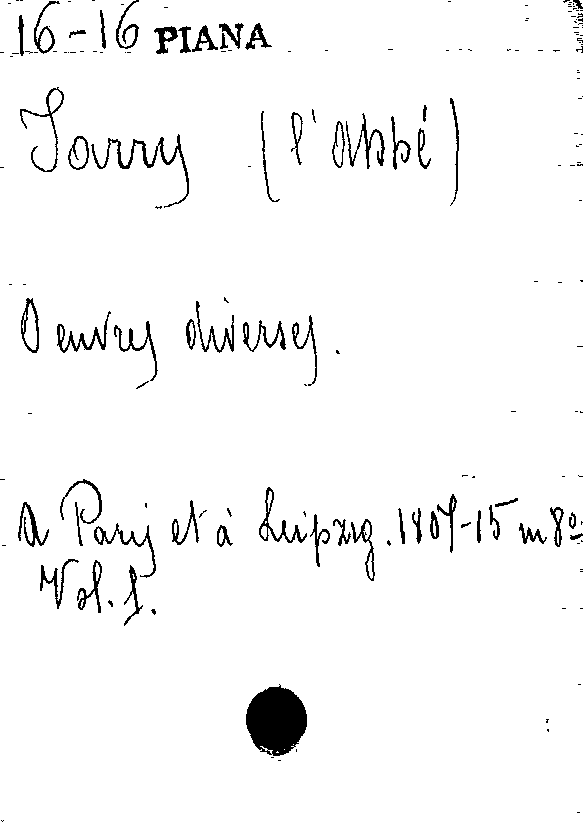 16-16 PIANA
Jarry (l'abbé)
Oeuvres diverses.
A Paris et à Leipzig. 1807-15 in 8º:
Vol. 1.